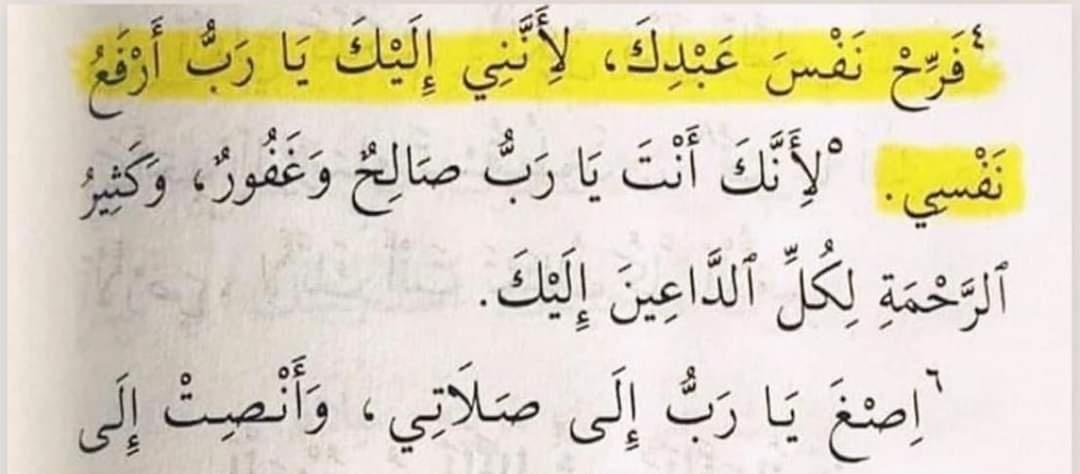 ٤ فَرِّحْ نَفْسَ عَبْدِكَ، لِأَنَّنِي إِلَيْكَ يَا رَبُّ أَرْفَعُ
نَفْسِي. ٥ لِأَنَّكَ أَنْتَ يَا رَبُّ صَالِحٌ وَغَفُورٌ، وَكَثِيرُ
ٱلرَّحْمَةِ لِكُلِّ ٱلدَّاعِينَ إِلَيْكَ.
٦ اِصْغَ يَا رَبُّ إِلَى صَلَاتِي، وَأَنْصِتْ إِلَى